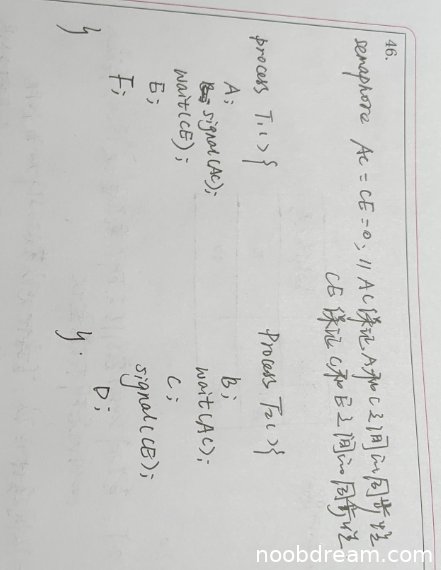 46.
semaphore AC = CE = 0; // AC保证A和C之间的同步性
CE保证C和E之间的同步性
process T1() {
A;
signal(AC);
wait(CE);
E;
F;
}
Process T2() {
B;
wait(AC);
C;
signal(CE);
D;
}
noobdream.com